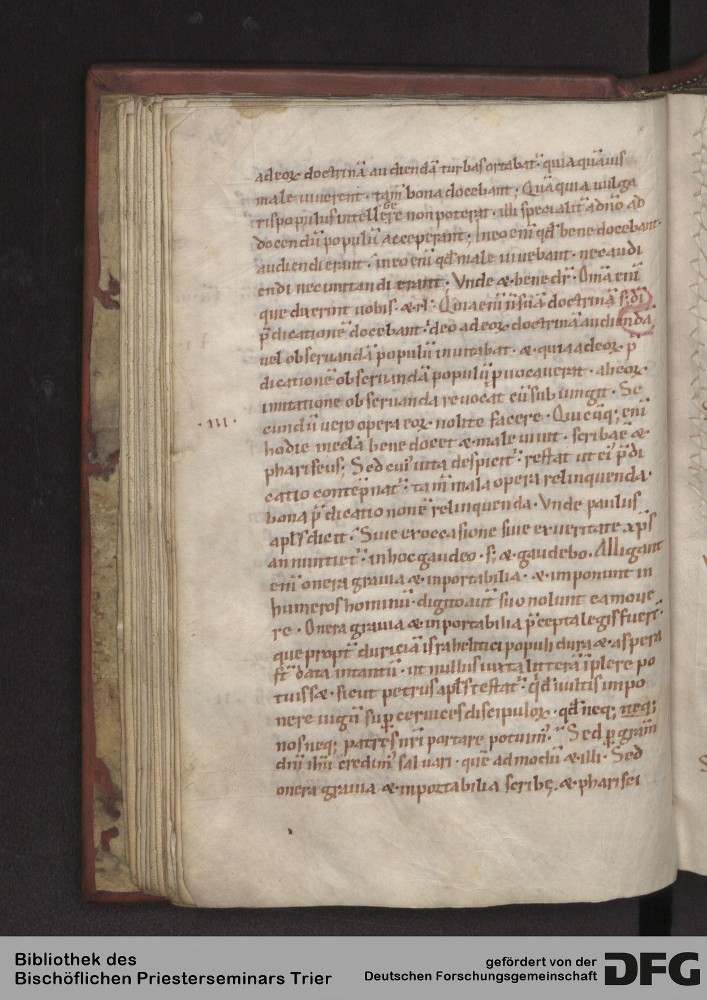 adeoꝝ doctrinā audiendā turbas ortabat᷑· quia quāuis
male uiuerent· tam̄ bona docebant· Quā quia uulga
ris populus intellegere non poterat· illi specialit̄ adnō ad
docendū populū acceperant; In eo eni qđ bene docebant·
audiendi erant· in eo eni qđ male uiuebant· nec audi
endi nec imitandi erant· Vnde & bene dr̄· Omā eni
que dixerint uobis· & rł· Qm̄a eni n̄ suā doctrinā s; dī
p̄dicationē docebant· ideo adeoꝝ doctrinā audienda
uel obseruandā populū inuitabat· & quia adeoꝝ p̄
dicationē obseruandā populū puocauerat· ab eoꝝ
imitatione obseruanda reuocat cū subiungit· Se
cundū uero opera eoꝝ· nolite facere· Quicūq; eni
·III·
hodie in ęcła bene docet & male uiuit· scriba ē &
phariseus; Sed cui᷒ uita despicit᷑· restat ut ei᷒ p̄di
catio contēpnat᷑· tam̄ mala opera relinquenda·
bona p̄dicatio non ē relinquenda· Vnde paulus
apłs dicit· Siue ex occasione siue ex ueritate xp̄s
annuntiet᷑· in hoc gaudeo· s; & gaudebo· Alligant
eni onera grauia & inportabilia· & imponunt in
humeros hominū· digito aut̄ suo nolunt ea moue
re· Onera grauia & inportabilia p̄cepta legis fuer̄t·
que propt̄ duriciā israhelitici populi dura & aspera
st̄ data intantū· ut nullus iuxta litterā īplere po
tuiss&· sicut petrus apłs testat᷑· Qd̄ uultis impo
nere iugū sup ceruices discipuloꝝ· qđ neq; neq;
nos neq; patres nr̄i portare potuim᷒· Sed p gram̄
dn̄i ih̄u credim᷒ saluari· quē admodū & illi· Sed
onera grauia & inportabilia scribę & pharisei
Bibliothek des
Bischöflichen Priesterseminars Trier
gefördert von der
Deutschen Forschungsgemeinschaft
DFG